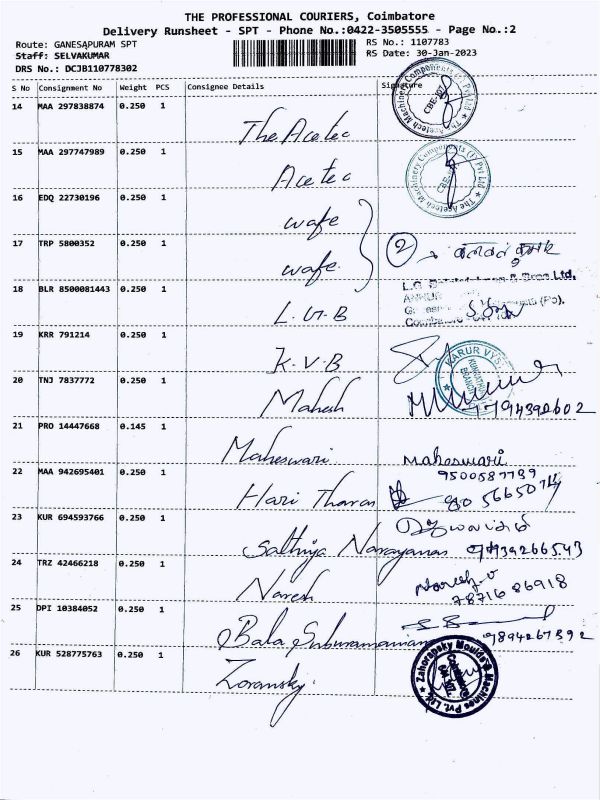 THE PROFESSIONAL COURIERS, Coimbatore
Delivery Runsheet - SPT - Phone No.:0422-3505555 - Page No.:2
Route: GANESAPURAM SPT
RS No.: 1107783
Staff: SELVAKUMAR
RS Date: 30-Jan-2023
DRS No.: DCJB110778302
S No Consignment No Weight PCS Consignee Details Signature
14 MAA 297838874 0.250 1 The Acetec
15 MAA 297747989 0.250 1 Acetec
16 EDQ 22730196 0.250 1 wafe
17 TRP 5800352 0.250 1 wafe 2
18 BLR 8500081443 0.250 1 L.G.B
19 KRR 791214 0.250 1 K.V.B KARUR VYS
20 TNJ 7837772 0.250 1 Mahesh 7794390602
21 PRO 14447668 0.145 1 Maheswari Maheswari
9500587739
22 MAA 942695401 0.250 1 Hari Tharan
23 KUR 694593766 0.250 1 Sathiya Narayanan
24 TRZ 42466218 0.250 1 Naresh Naresh.v
7871686918
25 DPI 10384052 0.250 1 Bala Suburamanian 9894267392
26 KUR 528775763 0.250 1 Zoransky.
Zahoransky Moulds & Machines Pvt. Ltd.